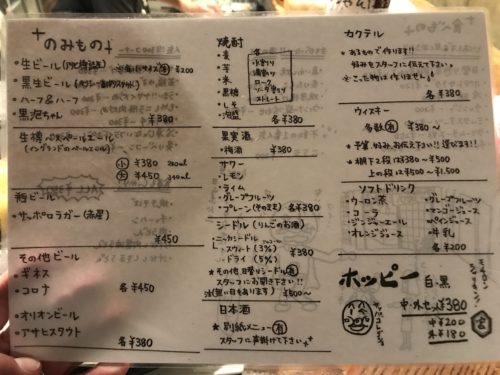 のみもの
・生ビール
¥200
・黒生ビール
・ハーフ&ハーフ
・黒泡ちゃん
¥380
小 ¥380
大 ¥450
瓶ビール
・サッポロラガー(赤星)
¥450
その他ビール
・ギネス
・コロナ
各¥450
・オリオンビール
・アサヒスタウト
各¥380
焼酎
・麦
・芋
・米
・黒糖
・しそ
・泡盛
水割り
湯割り
ロック
ソーダ割り
ストレート
各¥380
果実酒
・梅酒 ¥380
サワー
・レモン
・ライム
・グレープフルーツ
・プレーン(そのまま) 各¥380
シードル(りんごのお酒)
・ニッカシードル
・スウィート (3%)
・ドライ (5%)
¥380
★その他日替りシードル有
スタッフにお聞き下さい!!
(無い日もあります) ¥500〜
日本酒
★別紙メニュー有
スタッフに声掛けて下さい
カクテル
・あるもので作ります!!
好みをスタッフに伝えて下さい。
こった物は作りません!
各¥380
ウィスキー
・各数有 ¥380〜
★予算、好み、お伝え下さい!!選びます!!
★棚下2段は¥380〜¥500
上の段は¥500〜¥1,500
ソフトドリンク
・ウーロン茶
・コーラ
・ジンジャーエール
・オレンジジュース
・グレープフルーツ
・マンゴージュース
・牛乳
各¥200
ホッピー 白・黒
中・外セット¥380
中¥200
外¥180